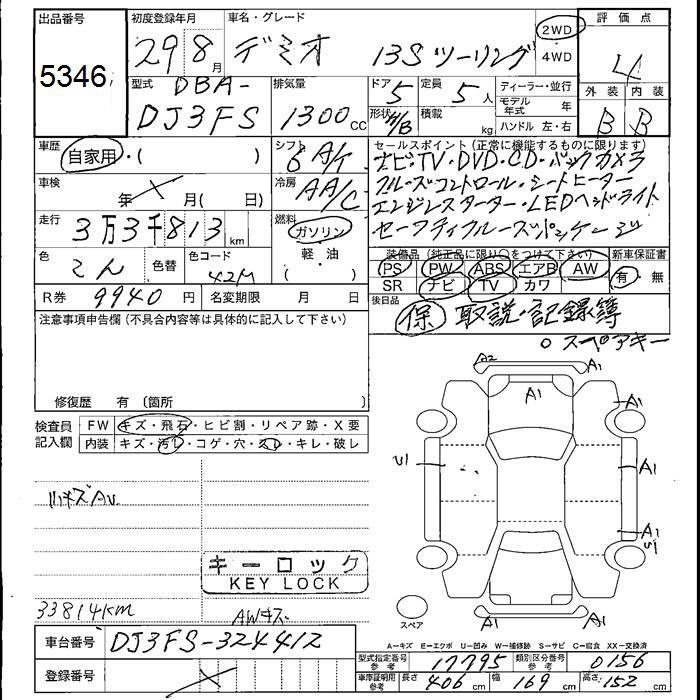 出品番号 5346
初度登録年月 29 8月
車名・グレード デミオ 13Sツーリング
2WD
4WD
評価点 4
外装 B 内装 B
型式 DBA-
DJ3FS
排気量 1300 CC
ドア 5 定員 5 人
形状 H/B 積載 kg
ディーラー・並行
モデル年式 年
ハンドル 左・右
車歴 自家用・( )
シフト 6 A/T
車検 年 月( 日)
冷房 AA/C
走行 3万3千813 km
燃料 ガソリン
軽・油
( )
色 こん 色替 色コード 42M
R券 9940円 名変期限 月 日
セールスポイント(正常に機能するものに限ります)
ナビ・TV・DVD・CD・バックカメラ
クルーズコントロール・シートヒーター
エンジンスターター・LEDヘッドライト
セーフティクルーズパッケージ
装備品(純正品に限り○をつけて下さい) 新車保証書
PS PW ABS エアB AW 有・無
SR ナビ TV カワ
後日品
保 取説・記録簿
○スペアキー
注意事項申告欄(不具合内容等は具体的に記入して下さい)
修復歴 有(箇所 )
検査員記入欄
FW キズ・飛石・ヒビ割・リペア跡・X要
内装 キズ・汚レ・コゲ・穴・スレ・キレ・破レ
小キズAu
キーロック
KEY LOCK
33814KM
AWキズ
A2
A1
A1
U1
A1
A1
U1
A1
A1
スペア
A-キズ E-エクボ U-凹み W-補修跡 S-サビ C-腐食 XX-交換済
車台番号 DJ3FS-324412
登録番号
型式指定番号参考 17795 類別区分番号参考 0156
車庫証明用参考 長さ 406 cm 幅 169 cm 高さ 152 cm